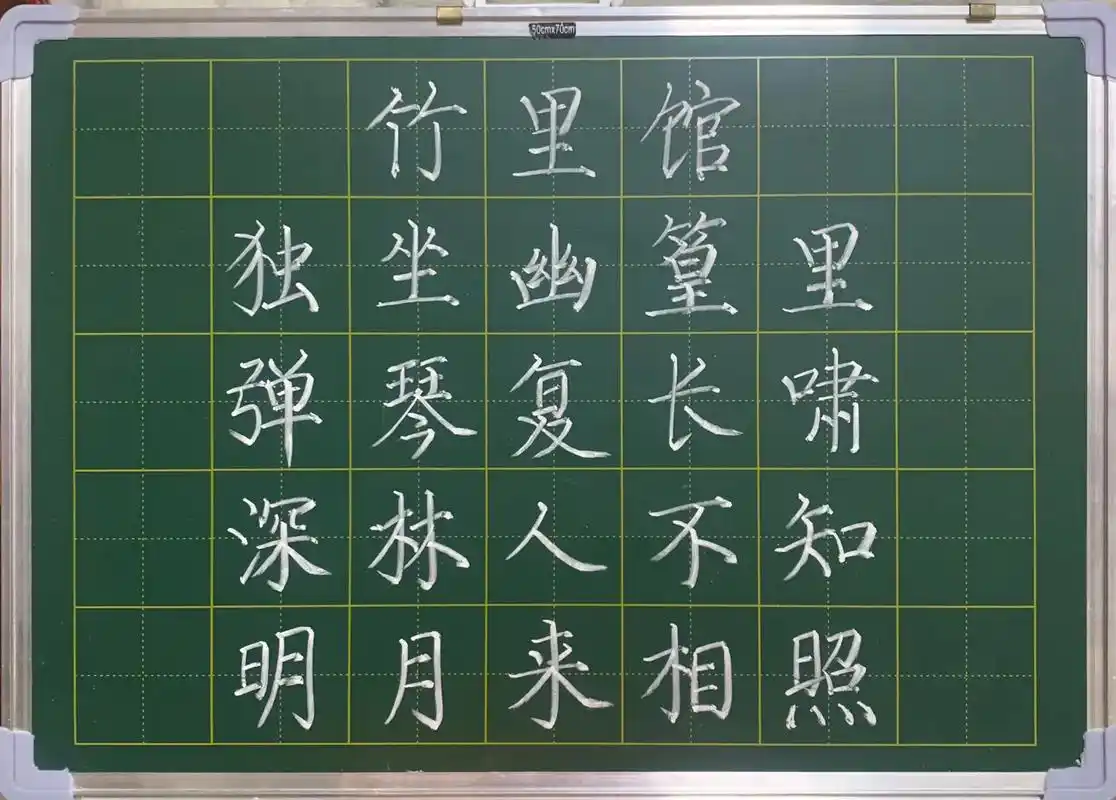 50cmx70cm
竹里馆
独坐幽篁里
弹琴复长啸
深林人不知
明月来相照